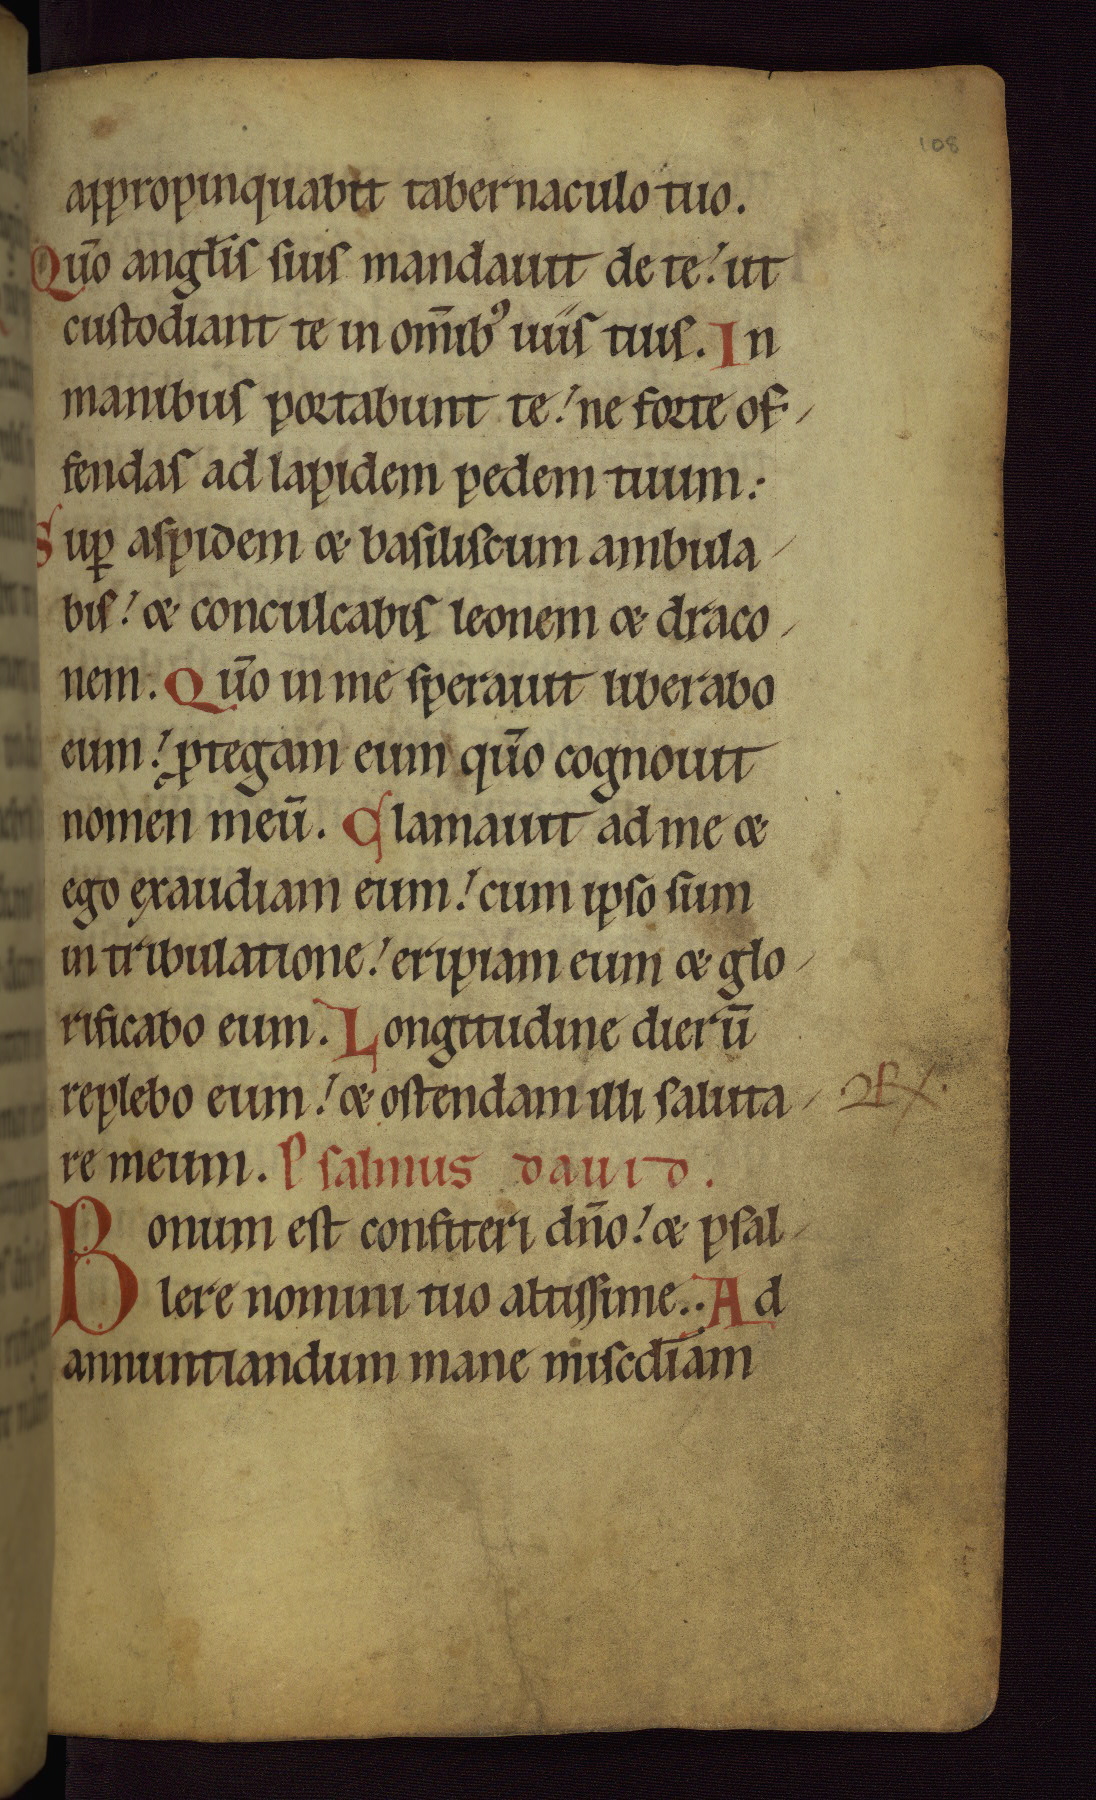 108
appropinquabit tabernaculo tuo.
Qūo angl̄is suis mandauit de te! ut
custodiant te in om̄ib⁹ uiis tuis. In
manibus portabunt te! ne forte of-
fendas ad lapidem pedem tuum.
Sup̱ aspidem & basiliscum ambula-
bis! & conculcabis leonem & draco-
nem. Qūo in me sperauit liberabo
eum! ꝓtegam eum qūo cognouit
nomen meū. Clamauit ad me &
ego exaudiam eum! cum ipso sum
in tribulatione! eripiam eum & glo-
rificabo eum. Longitudine dierū
replebo eum! & ostendam illi saluta-
re meum. Psalmus dauid.
Bonum est confiteri dn̄o! & psal-
lere nomini tuo altissime. Ad
annuntiandum mane miscdīam